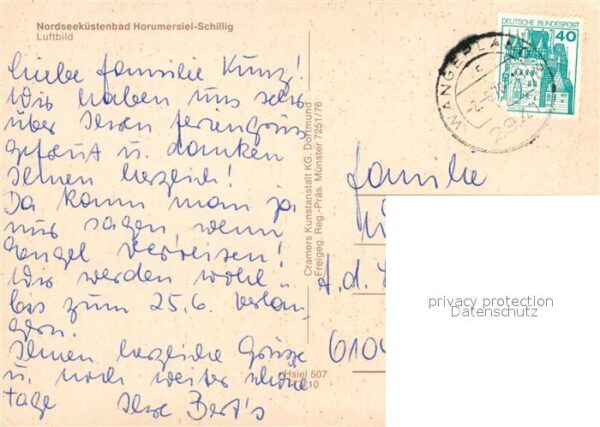 Nordseeküstenbad Horumersiel-Schillig
Luftbild
Liebe Familie Kunz!
Wir haben uns sehr
über Ihren Feriengruss
gefreut u. danken
Ihnen herzlich!
Da kann man ja
nur sagen, wenn
Engel verreisen!
Wir werden wohl
bis zum 25.6. verlän-
gern.
Ihnen herzliche Grüsse
u. noch weiter schöne
Tage Ihre Bert's
Cramers Kunstanstalt KG, Dortmund
Freigeg. Reg.-Präs. Münster 7251/76
Hsiel 507
10
DEUTSCHE BUNDESPOST
40
WANGERLAND
294
Familie
A.d.
6104
privacy protection
Datenschutz